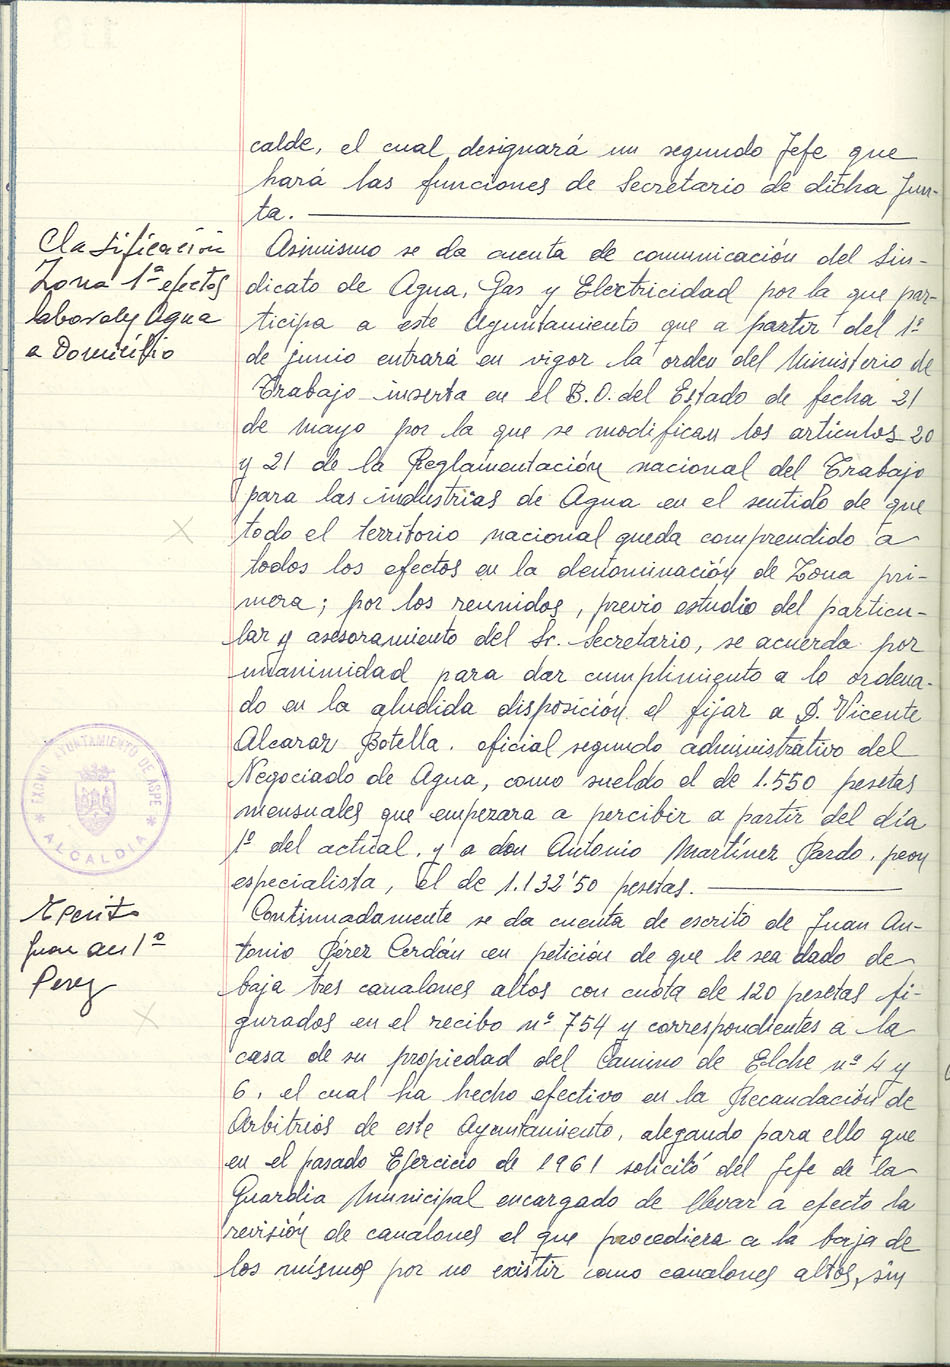 calde, el cual designará un segundo Jefe que
hará las funciones de Secretario de dicha Jun-
ta.
Clasificación
Zona 1ª efectos
laborales Agua
a Domicilio
Asimismo se da cuenta de comunicación del Sin-
dicato de Agua, Gas y Electricidad por la que par-
ticipa a este Ayuntamiento que a partir del 1º
de junio entrará en vigor la orden del Ministerio de
Trabajo inserta en el B.O. del Estado de fecha 21
de mayo por la que se modifican los artículos 20
y 21 de la Reglamentación nacional del Trabajo
para las industrias de Agua en el sentido de que
todo el territorio nacional queda comprendido a
todos los efectos en la denominación de Zona pri-
mera; por los reunidos, previo estudio del particu-
lar y asesoramiento del Sr. Secretario, se acuerda por
unanimidad para dar cumplimiento a lo ordena-
do en la aludida disposición el fijar a D. Vicente
Alcaraz Botella, oficial segundo administrativo del
Negociado de Agua, como sueldo el de 1.550 pesetas
mensuales que empezara a percibir a partir del día
1º del actual, y a don Antonio Martínez Pardo, peon
especialista, el de 1.132'50 pesetas.
EXCMO. AYUNTAMIENTO DE ASPE
* ALCALDIA *
Juan Anº
Perez
Continuadamente se da cuenta de escrito de Juan An-
tonio Pérez Cerdán en petición de que le sea dado de
baja tres canalones altos con cuota de 120 pesetas fi-
gurados en el recibo nº 754 y correspondientes a la
casa de su propiedad del Camino de Elche nº 4 y
6, el cual ha hecho efectivo en la Recaudación de
Arbitrios de este Ayuntamiento, alegando para ello que
en el pasado Ejercicio de 1961 solicitó del Jefe de la
Guardia Municipal encargado de llevar a efecto la
revisión de canalones el que procediera a la baja de
los mismos por no existir como canalones altos, sin